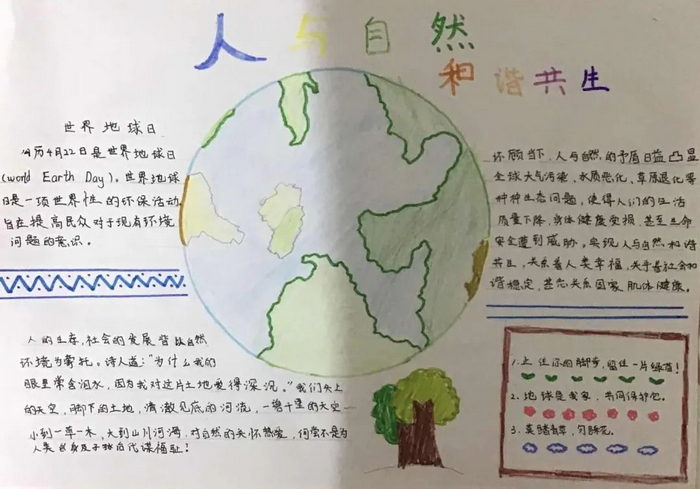 人与自然
和谐共生
世界地球日
公历4月22日是世界地球日
(world Earth Day)。世界地球
日是一项世界性的环保活动
旨在提高民众对于现有环境
问题的意识。
环顾当下,人与自然的矛盾日益凸显
全球大气污染、水质恶化、草原退化等
种种生态问题,使得人们的生活
质量下降,身体健康受损,甚至生命
安全遭到威胁。实现人与自然和谐
共生,关系着人类幸福,关乎着社会和
谐稳定,甚至关系国家肌体健康。
人的生存,社会的发展皆以自然
环境为依托。诗人道:"为什么我的
眼里常含泪水,因为我对这片土地爱得深沉。"我们头上
的天空,脚下的土地,清澈见底的河流,一碧千里的天空
小到一草一木,大到山川河海,对自然的关怀热爱,何尝不是为
人类自身及子孙后代谋福祉!
1.止住你的脚步,留住一片绿茵!
2.地球是我家,共同保护它。
3.莫踏青草,勿踩花。